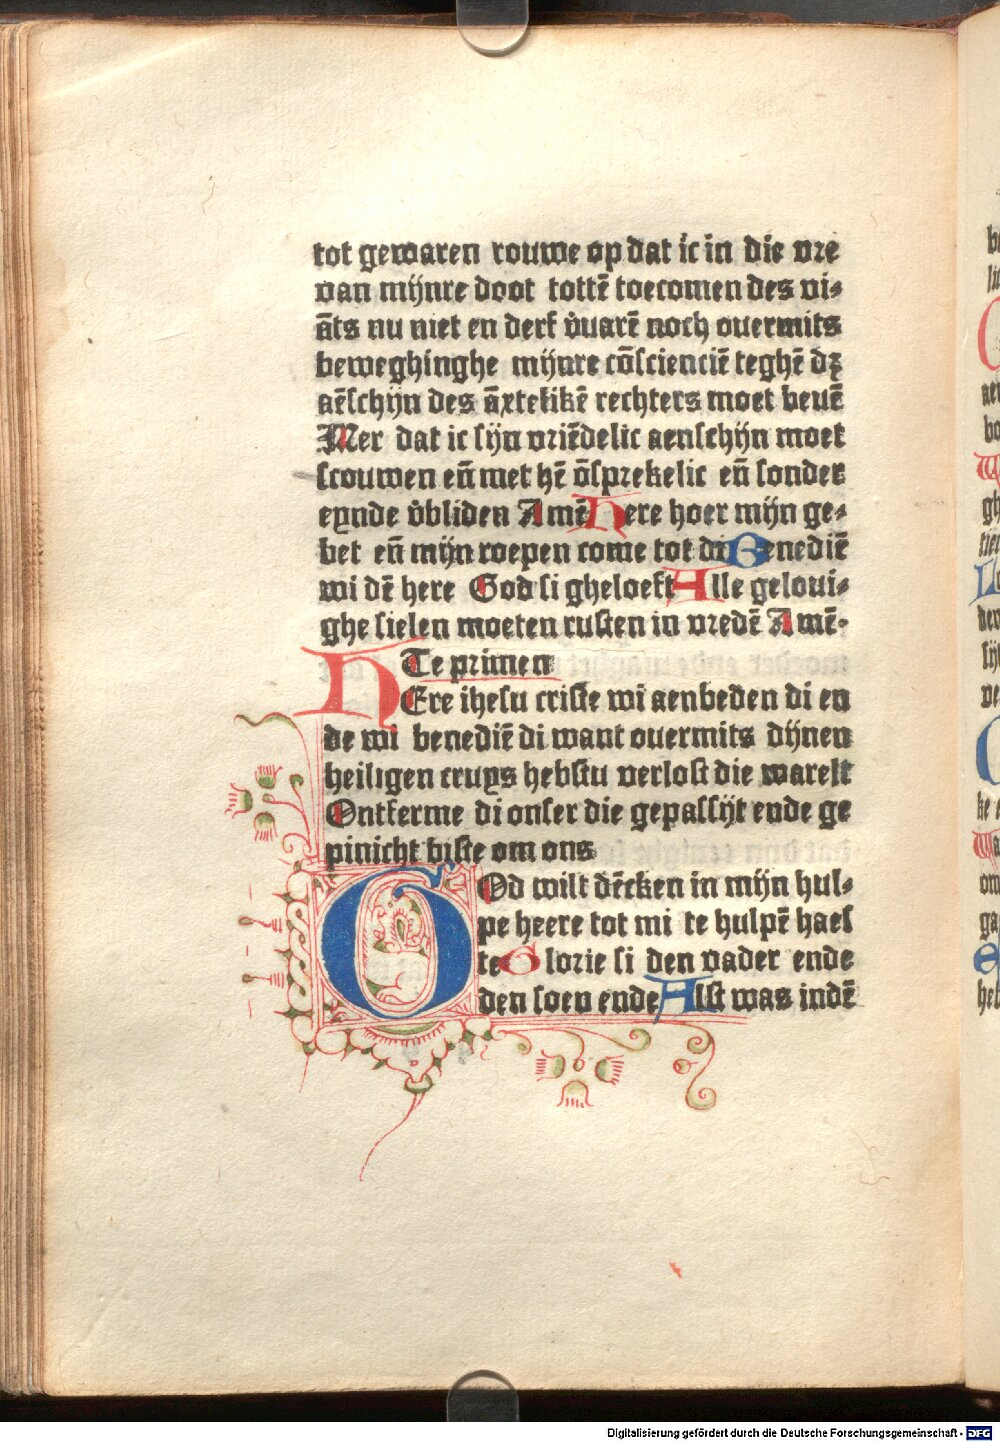 tot gewaren rouwe op dat ic in die vre
van mijnre doot tottē toecomen des vi⸗
āts nu niet en derf v̄uarē noch ouermits
beweghinghe mijnre cōsciencie͞ teghē dꝫ
aēschijn des āxtelikē rechters moet beuē
Mer dat ic sijn vriēdelic aenschijn moet
scouwen eñ met hē ōsprekelic eñ sonder
eynde v̄bliden Amē Here hoer mijn ge⸗
bet eñ mijn roepen come tot di Benediē
wi dē here God si gheloeft Alle geloui⸗
ghe sielen moeten rusten in vredē Amē.
Te primen
HEre ihesu criste wi aenbeden di en
de wi benediē di want ouermits dijnen
heiligen cruys hebstu verlost die warelt
Ontferme di onser die gepassijt ende ge
pinicht biste om ons
GOd wilt dēcken in mijn hul⸗
pe heere tot mi te hulpē haes
te Glorie si den vader ende
den soen ende Alst was indē
Digitalisierung gefördert durch die Deutsche Forschungsgemeinschaft - DFG